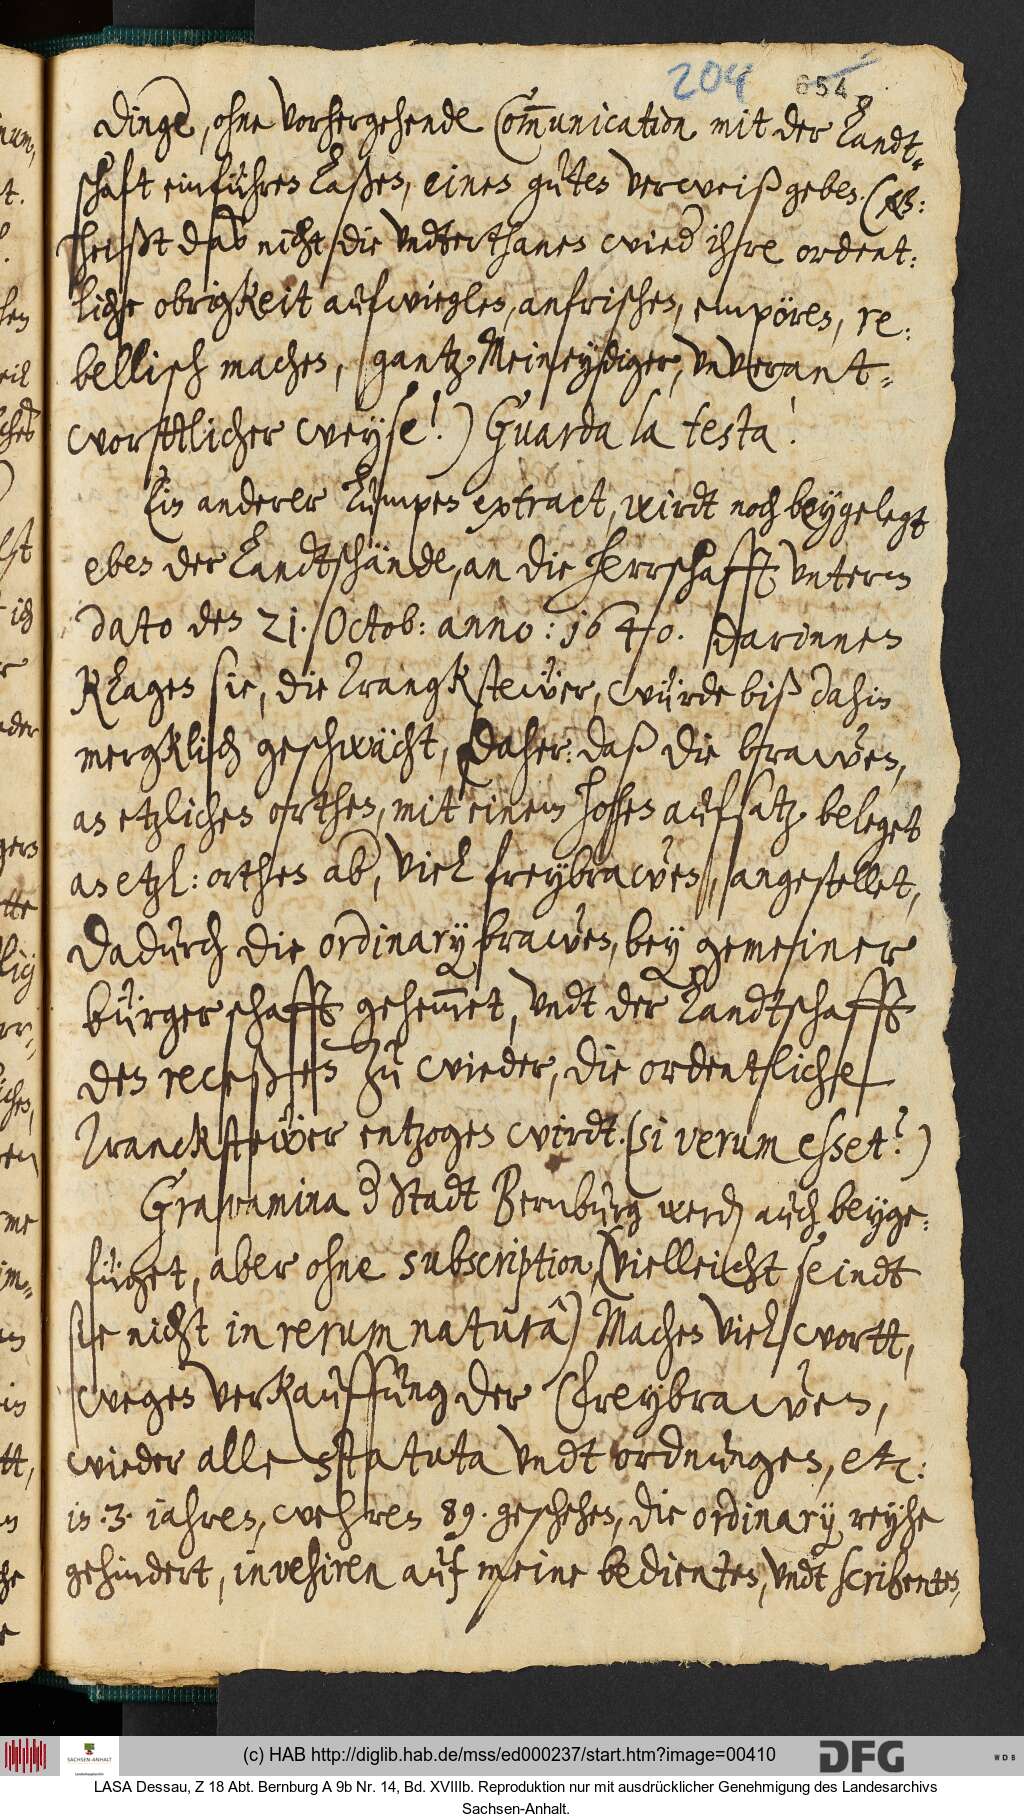 204 654
dinge, ohne vorhergehende Com̅unication mit der Landt-
schaft einführen laßen, einen guten verweiß geben. (NB:
heißt das nicht die Vndterthanen wied ihre ordent:
liche obrigkeit aufwieglen, anfrischen, empören, re:
bellisch machen, gantz Meineydiger, vnverant-
worttlicher weyse!) Guarda la testa!
Ein anderer Lumpen extract, wirdt noch beygelegt
eben der Landtschände, an die Herrschafft vnterm
dato den 21. Octob: anno: 1640. darinnen
Klagen sie, die Trangksteuer, würde biß dahin
mergklich geschwächt, daher: daß die brawen,
an etzlichen orthen, mit einem hohen aufsatz beleget
an etzl: orthen ab, viel freybrawen, angestellet,
Dadurch die ordinary brawen, bey gemeiner
bürgerschafft gehem̅et, vndt der Landtschafft
den receßen zu wieder, die ordentliche
Trancksteuer entzogen wirdt. (si verum esset?)
Gravamina d Stadt Bernburg werd auch beyge:
füget, aber ohne subscription, (vielleicht seindt
sie nicht in rerum naturâ) Machen viel wortt,
wegen verkauffung der Freybrawen,
wieder alle statuta vndt ordnungen, etc:
in .3. jahren, wehren 89. geschehen, die ordinary reyhe
gehindert, invehiren auf meine bedienten, vndt scribenten,
(c) HAB http://diglib.hab.de/mss/ed000237/start.htm?image=00410
SACHSEN-ANHALT
DFG
WDB
LASA Dessau, Z 18 Abt. Bernburg A 9b Nr. 14, Bd. XVIIIb. Reproduktion nur mit ausdrücklicher Genehmigung des Landesarchivs
Sachsen-Anhalt.